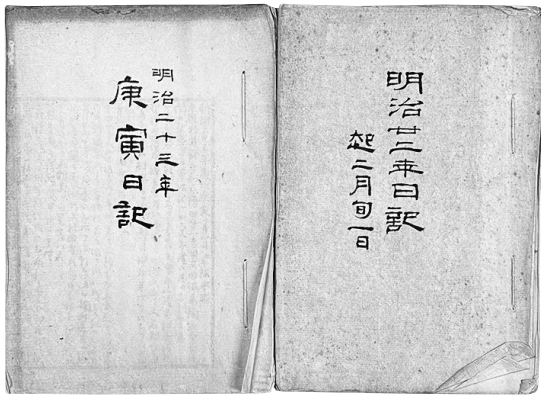 明治廿二年日記
起二月旬一日
明治二十三年
庚寅日記